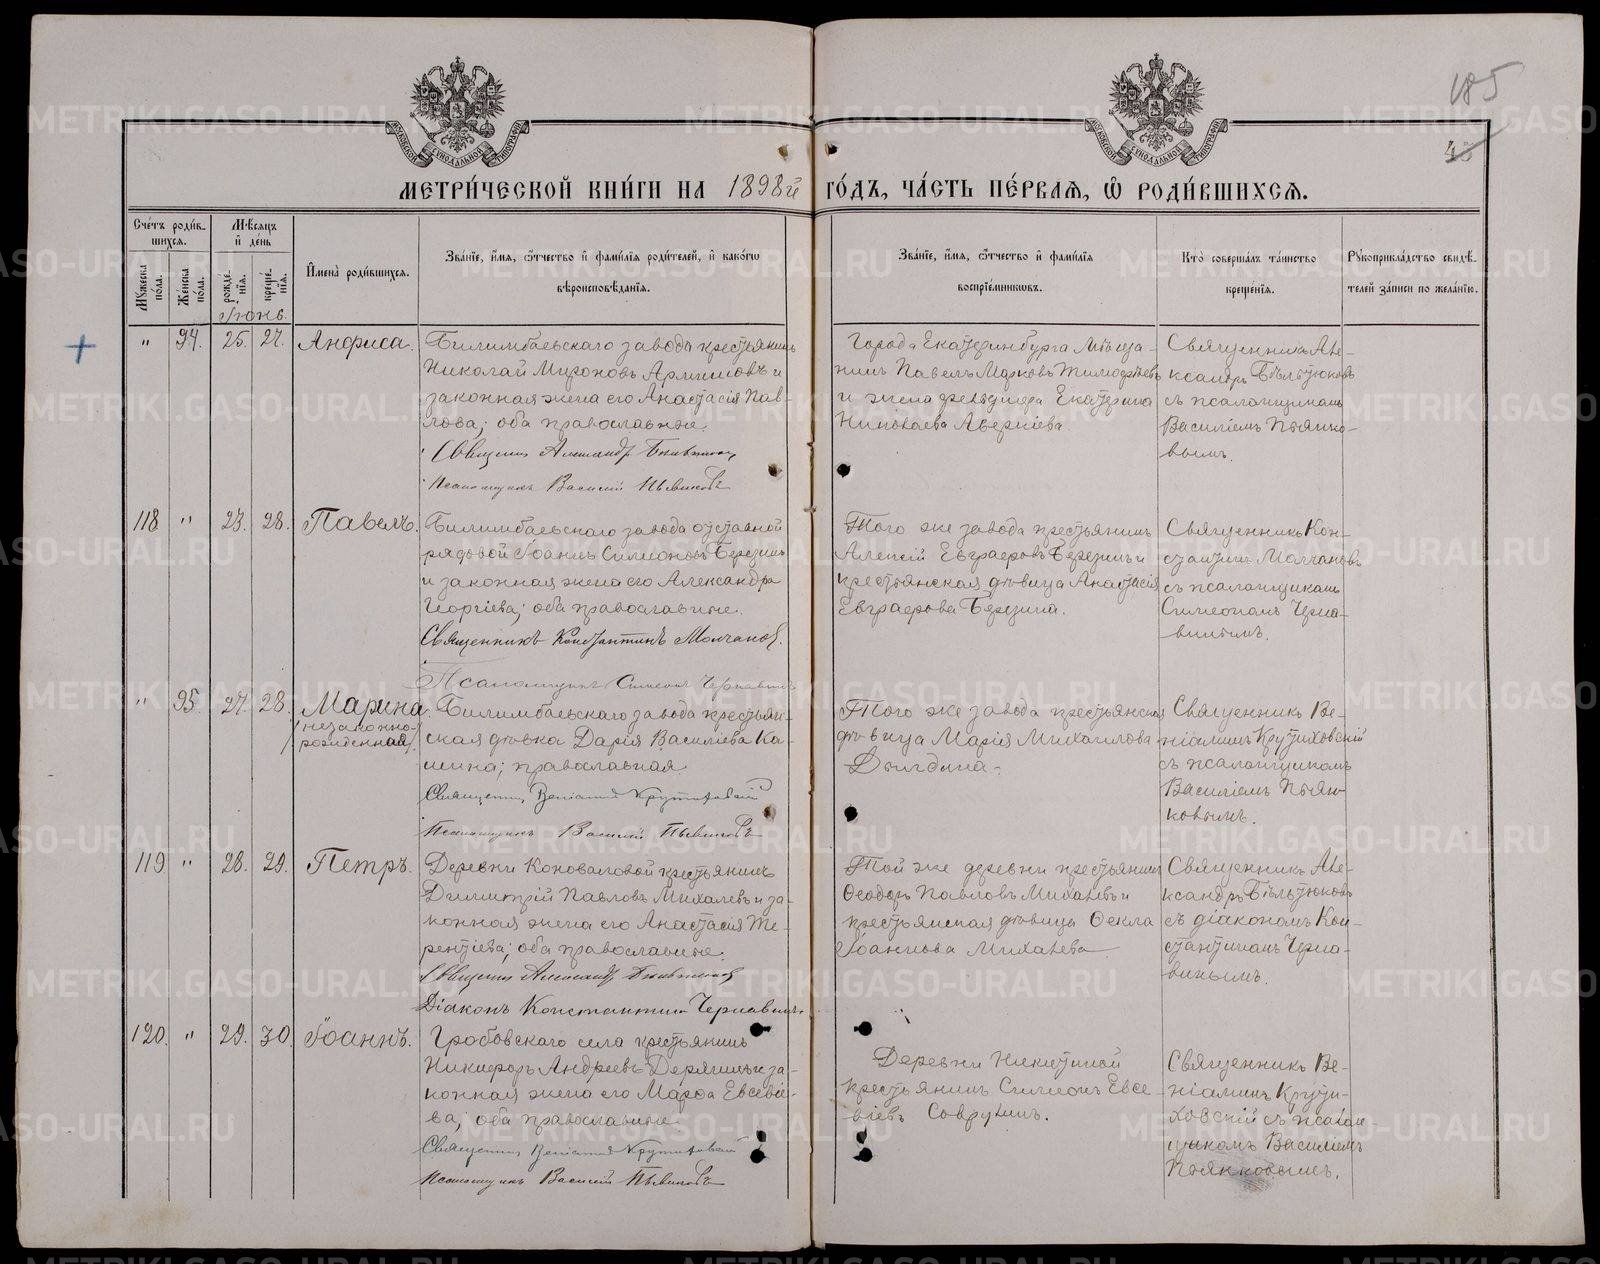 185
45
МЕТРИ́ЧЕСКОЙ КНИ́ГИ НА 1898й ГО́ДЪ, ЧА́СТЬ ПЕ́РВАѦ, Ѡ҆ РОДИ́ВШИХСѦ.
Сче́тъ роди́в-
шихсѧ.
Мꙋжеска по́ла.
Же́нска по́ла.
Мѣ́сѧцъ
и҆ де́нь
рожде́нїѧ.
креще́нїѧ.
Іюнь.
И҆мена̀ роди́вшихсѧ.
Зва́нїе, и҆́мѧ, ѻ҆́тчество и҆ фами́лїѧ роди́телей, и҆ како́гѡ
вѣроисповѣ́данїѧ.
Зва́нїе, и҆́мѧ, ѻ҆́тчество и҆ фами́лїѧ
воспрїе́мникѡвъ.
Кто̀ соверша́лъ та́инство
креще́нїѧ.
Рꙋкоприкла́дство свидѣ́-
телей за́писи по жела́нїю.
" 94. 25. 27. Анфиса.
Билимбаевскаго завода крестьянинъ
Николай Мироновъ и
законная жена его Анастасія Пав-
лова; оба православные.
Священникъ Александръ
Псаломщикъ Василій Пьянковъ
Города Екатеринбурга Мѣща-
нинъ Павелъ Марковъ Тимофѣевъ
и жена фельдшера Екатерина
Николаева
Священникъ Але-
ксандръ Бѣльтюковъ
съ псаломщикомъ
Василіемъ Пьянко-
вымъ.
118 " 27. 28. Павелъ.
Билимбаевскаго завода отставной
рядовой Іоаннъ Симеоновъ Березинъ
и законная жена его Александра
Георгіева; оба православные.
Священникъ Константинъ Молчановъ.
Псаломщикъ Симеонъ Чернавинъ
Того же завода крестьянинъ
Алексій Евграфовъ Березинъ и
крестьянская дѣвица Анастасія
Евграфова Березина.
Священникъ Кон-
стантинъ Молчановъ
съ псаломщикомъ
Симеономъ Черна-
винымъ.
" 95. 27. 28. Марина
(незаконно-
рожденная)
Билимбаевскаго завода крестьян-
ская дѣвка Дарія Василіева Ка-
шина; православная.
Священникъ Веніаминъ Крутиховскій
Псаломщикъ Василій Пьянковъ
Того же завода крестьянская
дѣвица Марія Михаилова
Дылдина.
Священникъ Ве-
ніаминъ Крутиховскій
съ псаломщикомъ
Василіемъ Пьян-
ковымъ.
119 " 28. 29. Петръ.
Деревни Коноваловой крестьянинъ
Димитрій Павловъ Михалевъ и за-
конная жена его Анастасія Те-
рентіева; оба православные.
Священникъ Александръ
Діаконъ Константинъ Чернавинъ.
Той же деревни крестьянинъ
Ѳеодоръ Павловъ Михалевъ и
крестьянская дѣвица Ѳекла
Іоаннова Михалева
Священникъ Але-
ксандръ Бѣльтюковъ
съ діакономъ Кон-
стантиномъ Черна-
винымъ.
120. " 29. 30. Іоаннъ.
Гробовскаго села крестьянинъ
Никифоръ Андреевъ и за-
конная жена его Марѳа Евсеві-
ева; оба православные.
Священникъ Веніаминъ Крутиховскій
Псаломщикъ Василій Пьянковъ
Деревни Никитиной
крестьянинъ Симеонъ Евсе-
віевъ
Священникъ Ве-
ніаминъ Крути-
ховскій съ псалом-
щикомъ Василіемъ
Пьянковымъ.
METRIKI.GASO-URAL.RU